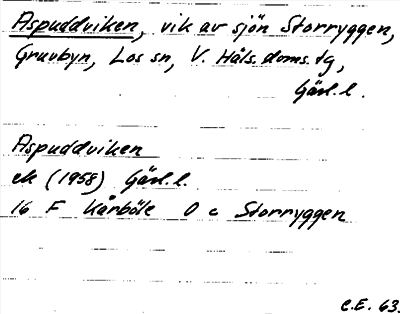 Aspuddviken, vik av sjön Storryggen,
Gruvbyn, Los sn, V. Häls. doms. tg,
Gävl. l.
Aspuddviken
ek (1958) Gävl. l.
16 F Kårböle 0 c Storryggen
C.E. 63.